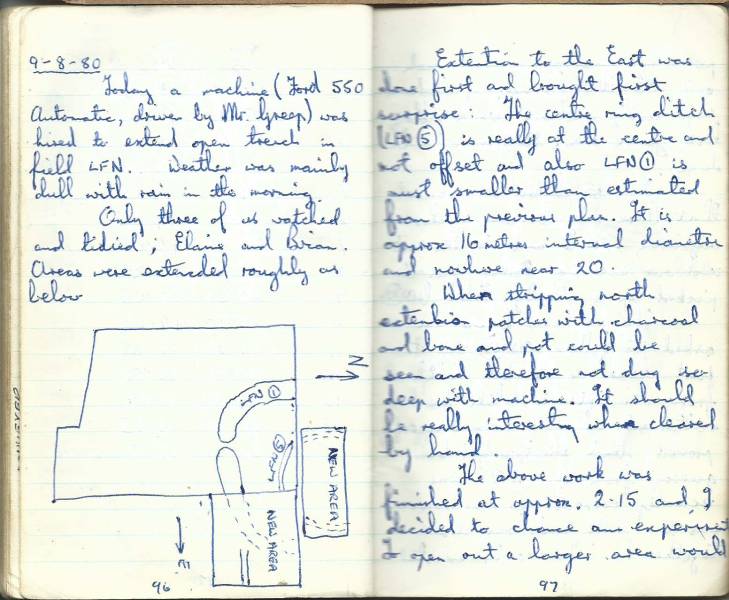 9-8-80
Today a machine (Ford 550
Automatic, driven by Mr. Greep) was
hired to extend open trench in
field LFN. Weather was mainly
dull with rain in the morning.
Only three of us watched
and tidied; Elaine and Brian.
Areas were extended roughly as
below
N
LFN ①
LFN ⑤
NEW AREA
NEW AREA
E
96
Extention to the East was
done first and bought first
surprise: The centre ring ditch
(LFN ⑤) is really at the centre and
not offset and also LFN ① is
must smaller than estimated
from the previous plan. It is
approx 16 metres internal diametre
and nowhere near 20.
When stripping north
extention patches with charcoal
and bone and pot could be
seen and therefore not dug so
deep with machine. It should
be really interesting when cleared
by hand.
The above work was
finished at approx. 2-15 and I
decided to chance an experiment
To open out a larger area would
97